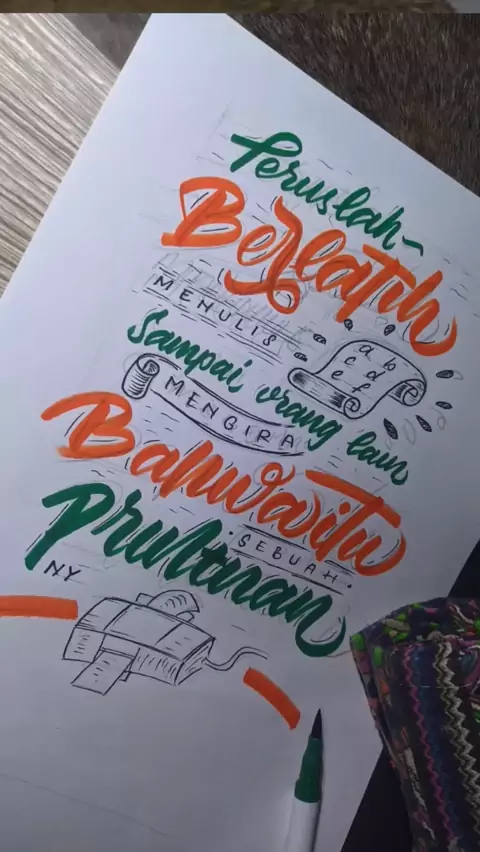 Teruslah-
Berlatih
MENULIS
a b
c d
e f
Sampai orang lain
MENGIRA
Bahwa itu
SEBUAH
NY